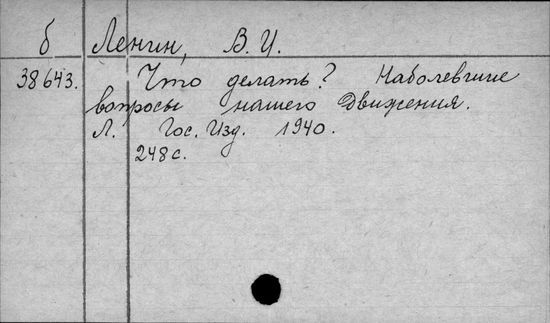 б Ленин, В. И.
38643. Что делать? Наболевшие
вопросы нашего движения.
Л. Гос. Изд. 1940.
248 с.